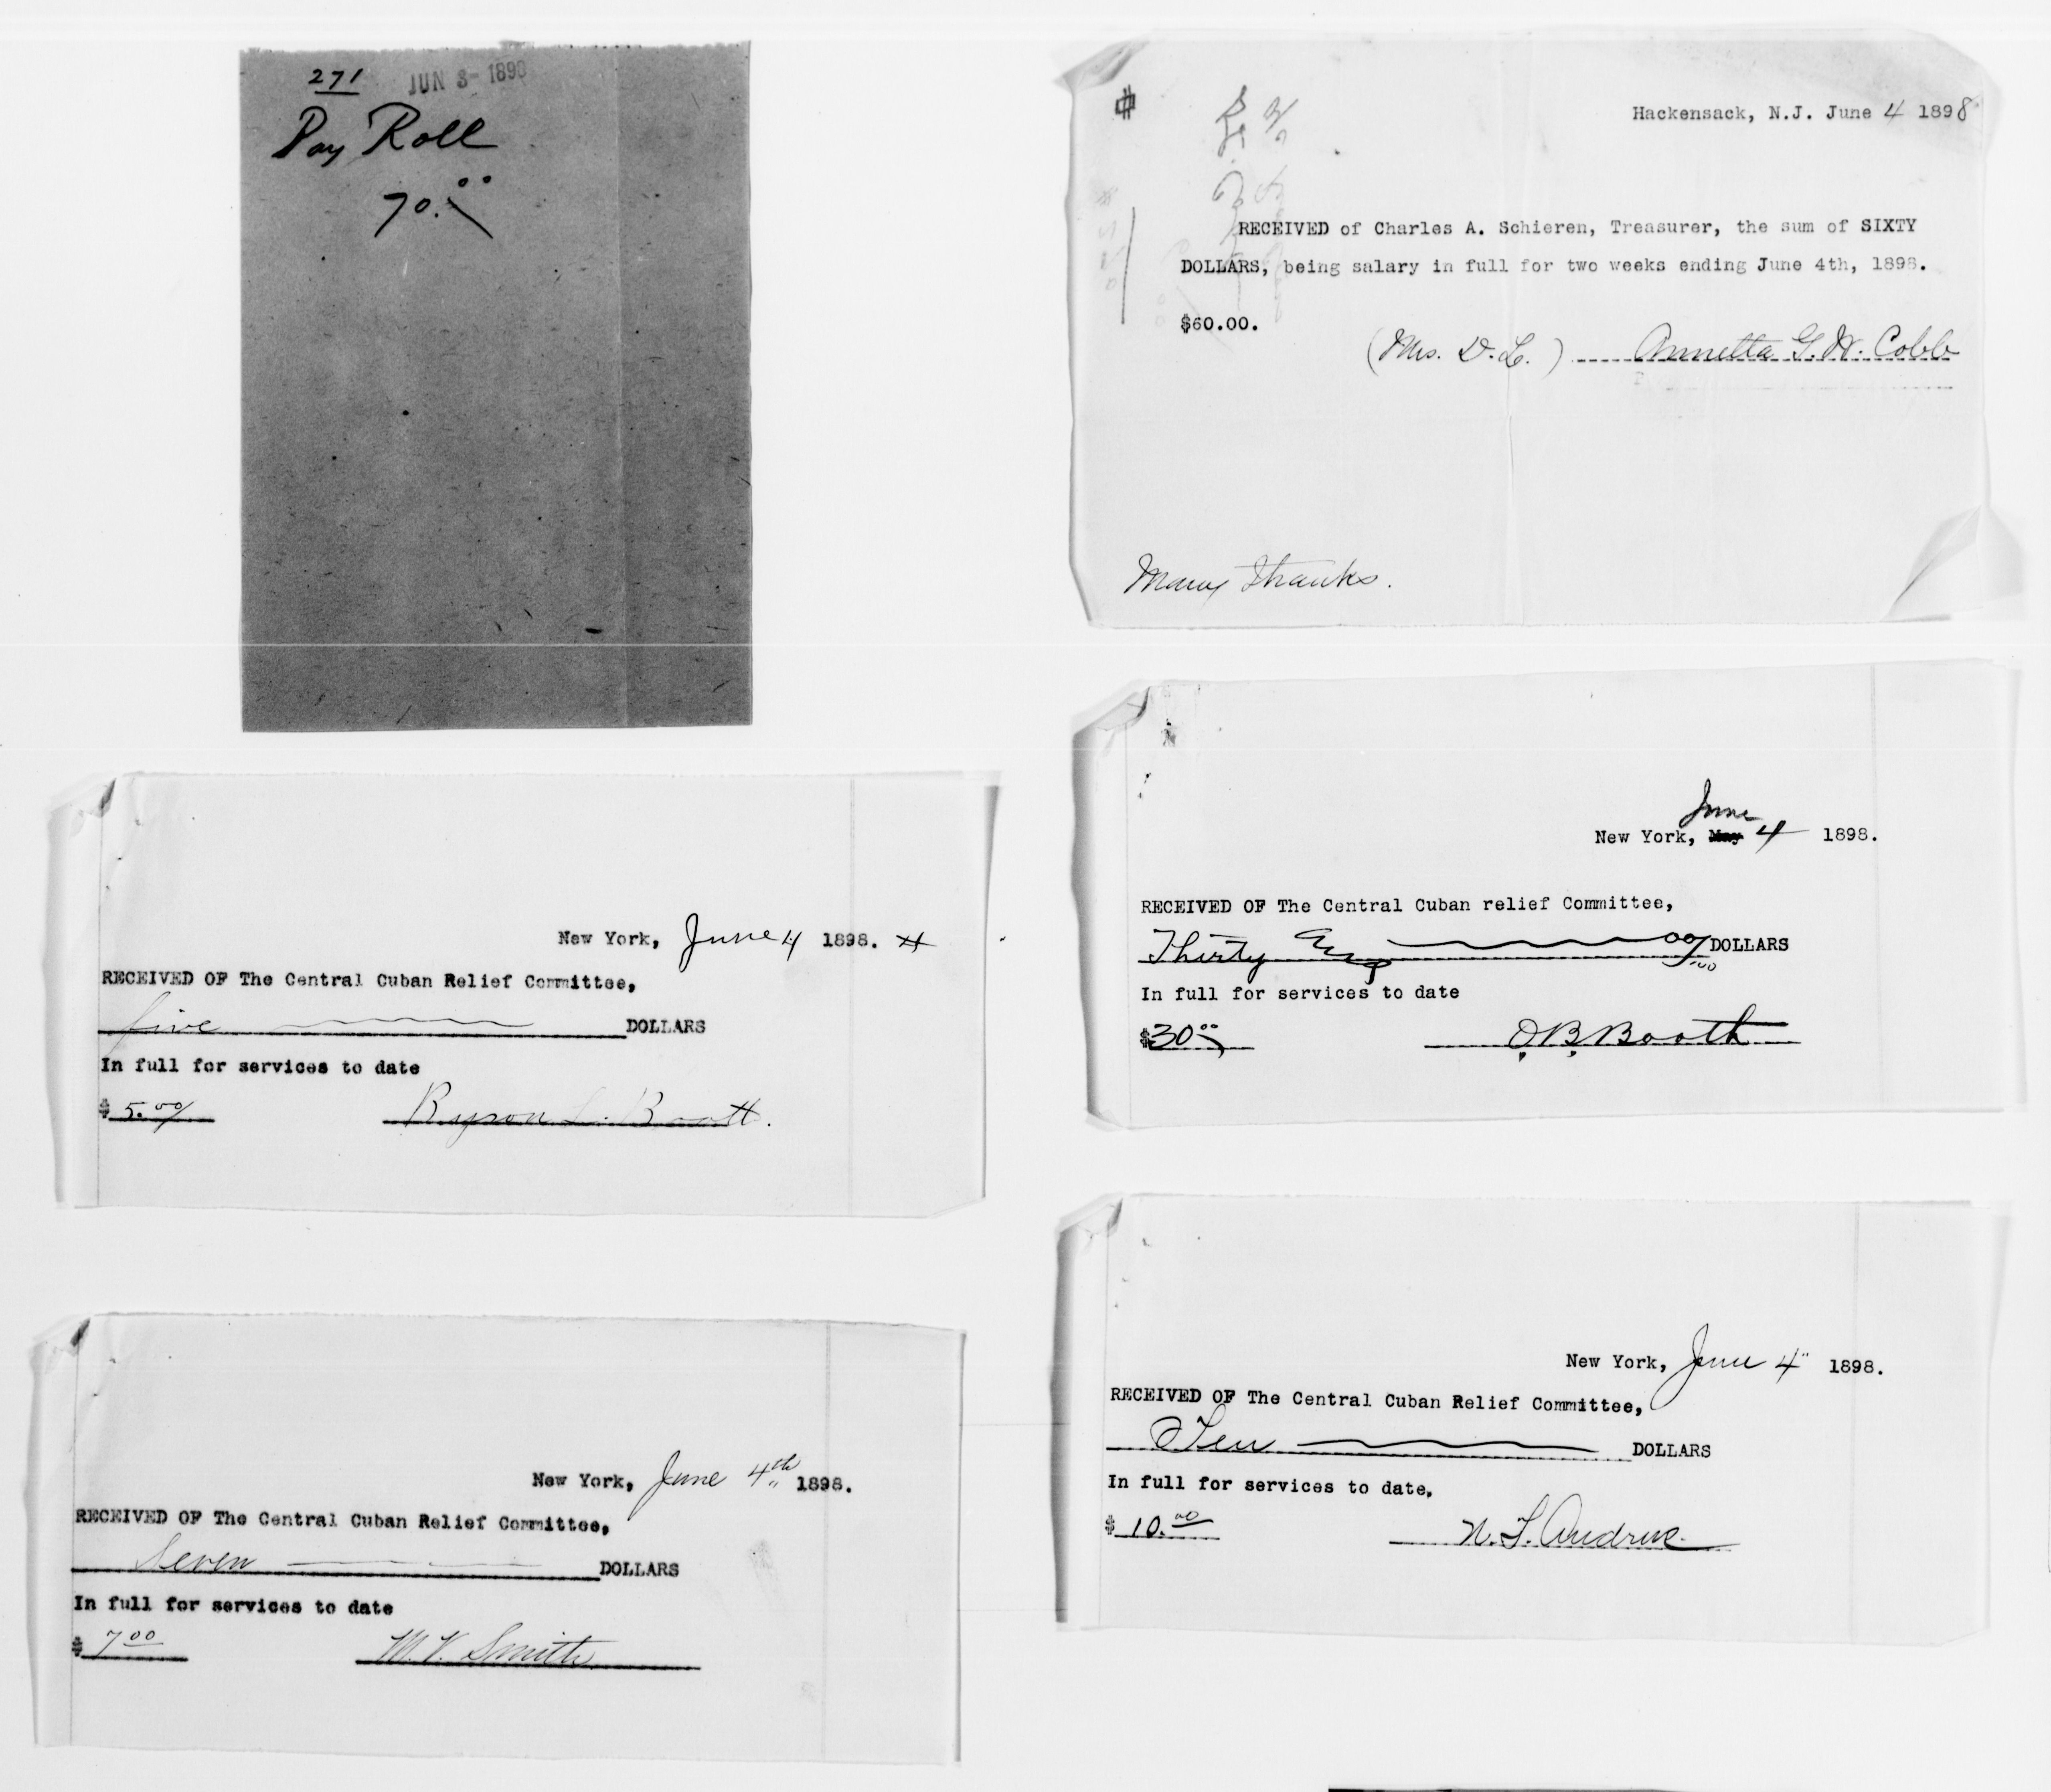 271 JUN 3- 1898
Pay Roll
70.00
Hackensack, N.J. June 4 1898
RECEIVED of Charles A. Schieren, Treasurer, the sum of SIXTY
DOLLARS, being salary in full for two weeks ending June 4th, 1898.
$60.00.
(Mrs. D. L.) Annetta G. W. Cobb
Many Thanks.
New York, June 4 1898.
RECEIVED OF The Central Cuban Relief Committee,
five DOLLARS
In full for services to date
$ 5.00/ Byron L. Booth.
June
New York, May 4 1898.
RECEIVED OF The Central Cuban relief Committee,
Thirty DOLLARS
In full for services to date
$30.00 O. B. Booth
New York, June 4th 1898.
RECEIVED OF The Central Cuban Relief Committee,
Seven DOLLARS
In full for services to date
$ 7.00 M. V. Smith
New York, June 4" 1898.
RECEIVED OF The Central Cuban Relief Committee,
Ten DOLLARS
In full for services to date.
$ 10.00